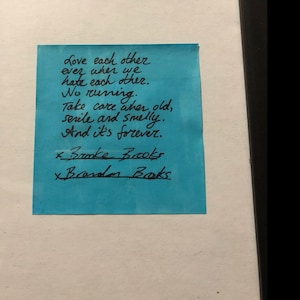 Love each other
even when we
hate each other.
No running.
Take care when old,
senile and smelly.
And it's forever.
x Brooke Brooks
x Brandon Brooks